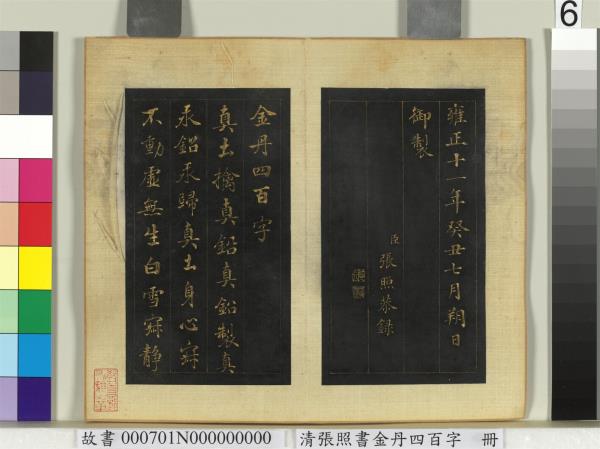 雍正十一年癸丑七月朔日
御製
臣張照恭錄
金丹四百字
真土擒真鉛真鉛製真
汞鉛汞歸真土身心寂
不動虛無生白雪寂靜
6
故書 000701N000000000 清張照書金丹四百字 冊